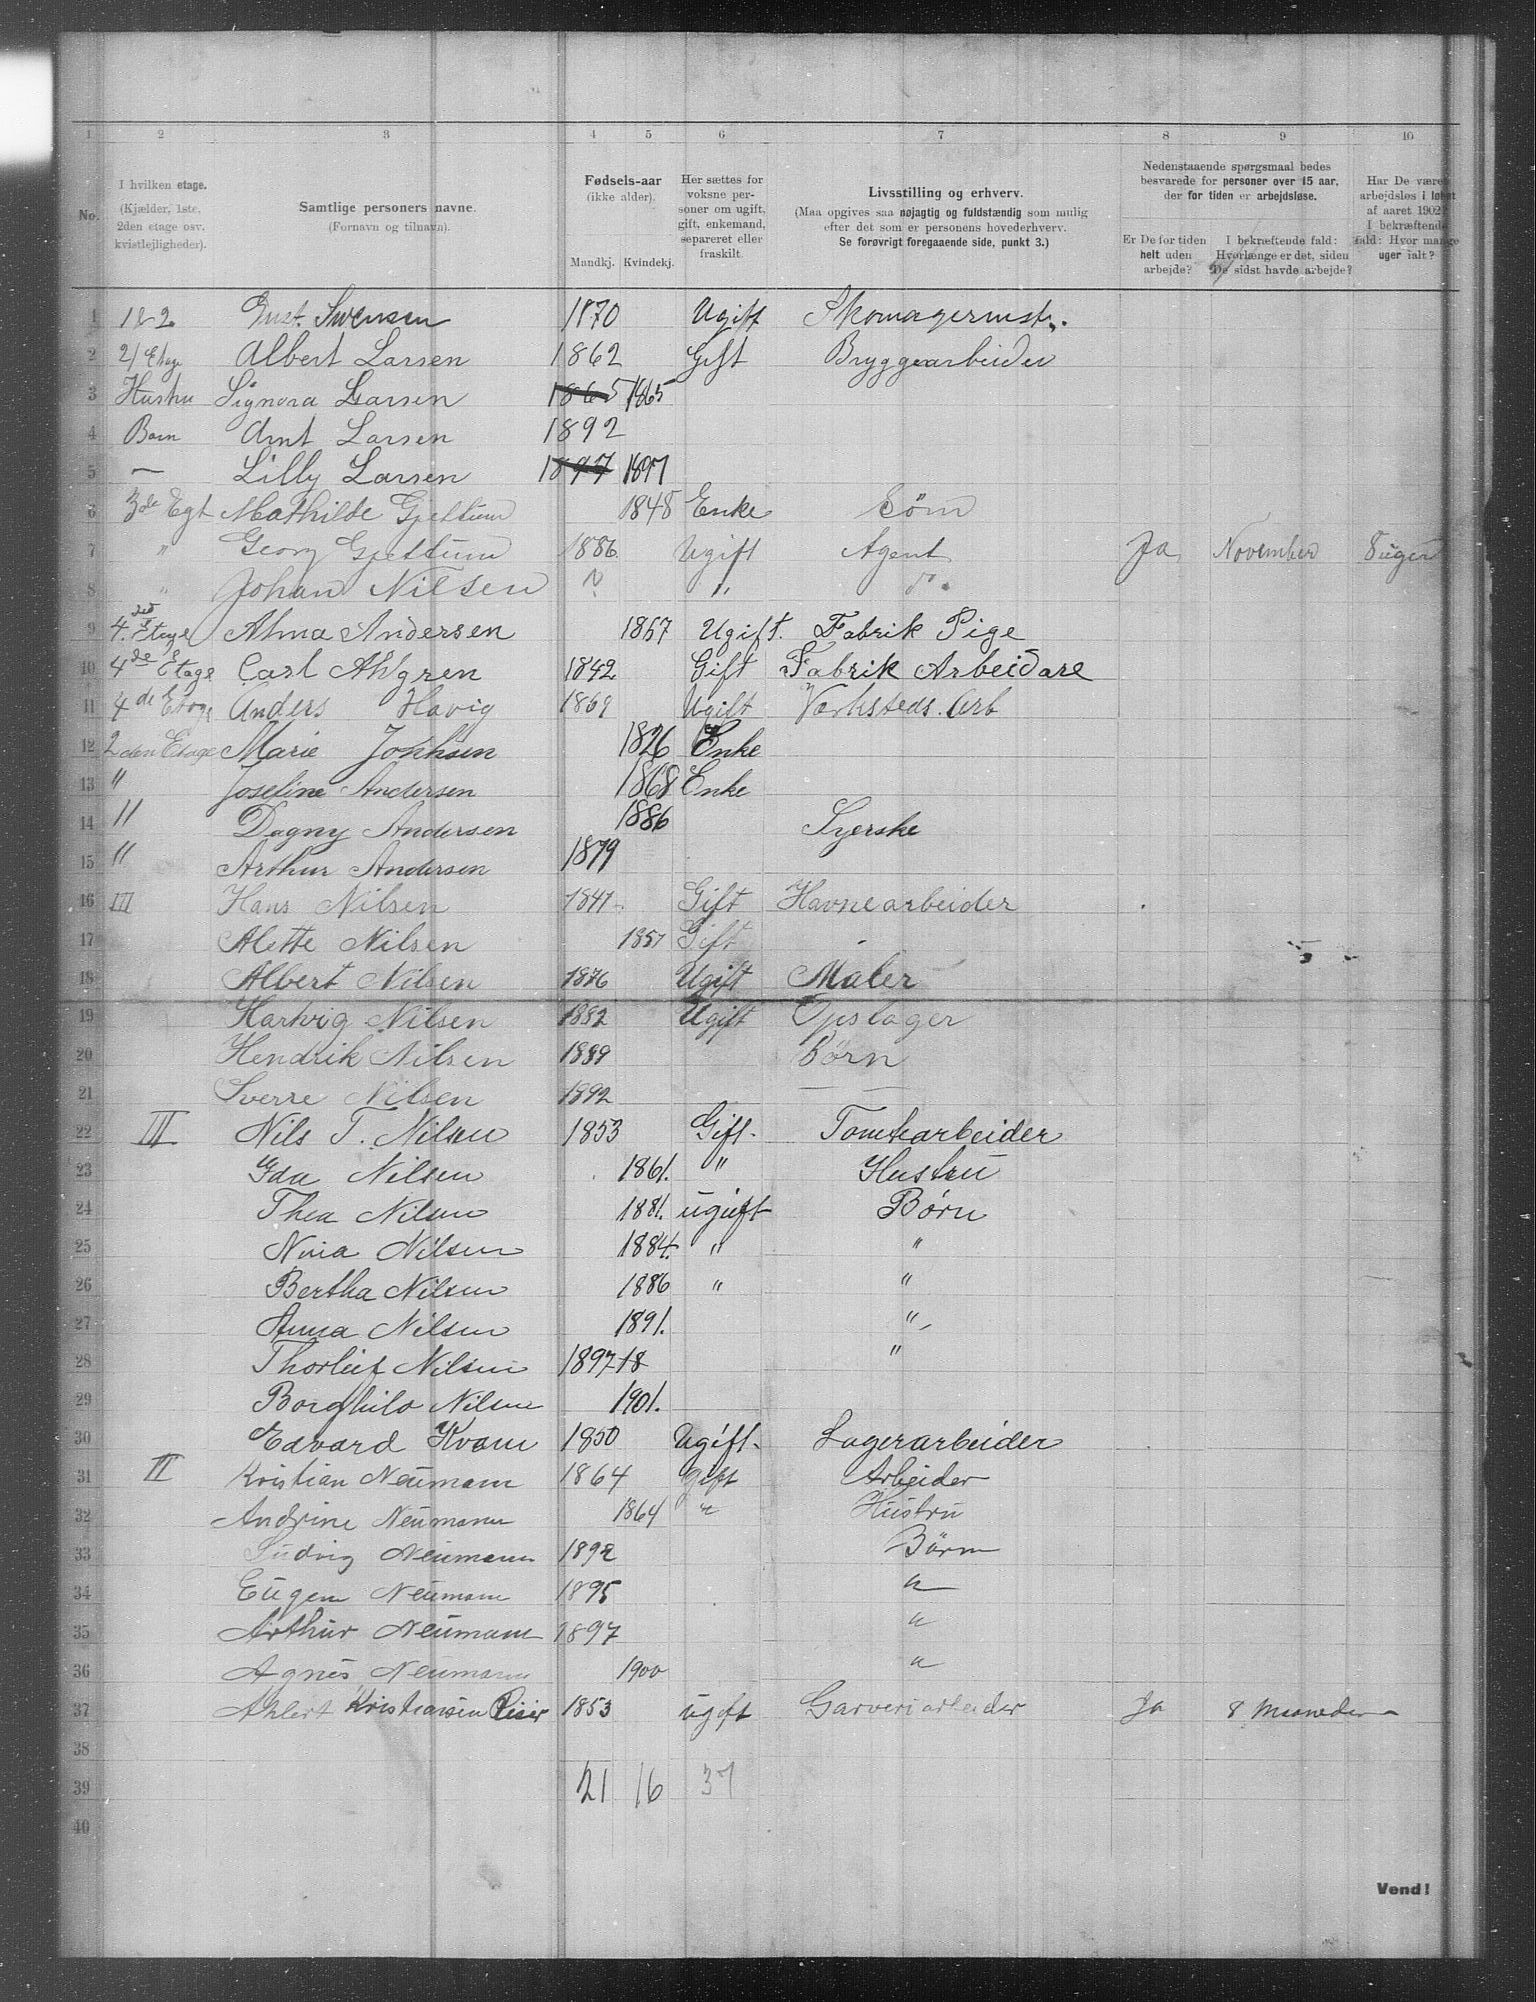 1 2 3 4 5 6 7 8 9 10
No. I hvilken etage. (Kjælder, 1ste, 2den etage osv. kvistlejligheder). Samtlige personers navne. (Fornavn og tilnavn). Fødsels-aar (ikke alder). Mandkj. Kvindekj. Her sættes for voksne personer om ugift, gift, enkemand, separeret eller fraskilt. Livsstilling og erhverv. (Maa opgives saa nøjagtig og fuldstændig som mulig efter det som er personens hovederhverv. Se forøvrigt foregaaende side, punkt 3.) Nedenstaaende spørgsmaal bedes besvarede for personer over 15 aar, der for tiden er arbejdsløse. Er De for tiden helt uden arbejde? I bekræftende fald: Hvorlænge er det, siden De sidst havde arbejde? Har De været arbejdsløs i løbet af aaret 1902? I bekræftende fald: Hvor mange uger ialt?
1 1&2 Gust. Swensen 1870 Ugift Skomagermst.
2 2/Etage Albert Larsen 1862 Gift Bryggearbeider
3 Hustru Signora Larsen 1865 1865
4 Barn Arnt Larsen 1892
5 — Lilly Larsen 1897 1897
6 3de Egt Mathilde Gjettum 1848 Enke Søm
7 " Georg Gjettum 1886 Ugift Agent Ja November 8 uger
8 " Johan Nilsen ? " do.
9 4.de Etage Alma Andersen 1867 Ugift. Fabrik Pige
10 4de Etage Carl Ahlgren 1842 Gift Fabrik Arbeidare
11 4de Etage Anders Havig 1869 Ugift Værksteds. Arb
12 2den Etage Marie 1826 Enke
13 " Josefine Andersen 1868 Enke
14 " Dagny Andersen 1886 Syerske
15 " Arthur Andersen 1879
16 III Hans Nilsen 1841 Gift Havnearbeider
17 Alette Nilsen 1857 Gift
18 Albert Nilsen 1876 Ugift Maler
19 Hartvig Nilsen 1882 Ugift Opslager
20 Hendrik Nilsen 1889 Børn
21 Sverre Nilsen 1892 — —
22 III Nils T. Nilsen 1853 Gift. Tomtearbeider
23 Ida Nilsen 1861. " Hustru
24 Thea Nilsen 1881. ugift Børn
25 Nina Nilsen 1884. " "
26 Bertha Nilsen 1886 " "
27 Anna Nilsen 1891. "
28 Thorleif Nilsen 1897 18 "
29 Borghild Nilsen 1901.
30 Edvard Kvam 1850 Ugift. Lagerarbeider
31 II Kristian Neumann 1864 Gift Arbeider
32 Andrine Neumann 1864 " Hustru
33 Ludvig Neumann 1892 Børn
34 Eugen Neumann 1895 "
35 Arthur Neumann 1897 "
36 Agnes Neumann 1900 "
37 Ahlert Kristiansen 1853 ugift Garveriarbeider Ja 8 Maaneder
38
39 21 16 37
40
Vend!